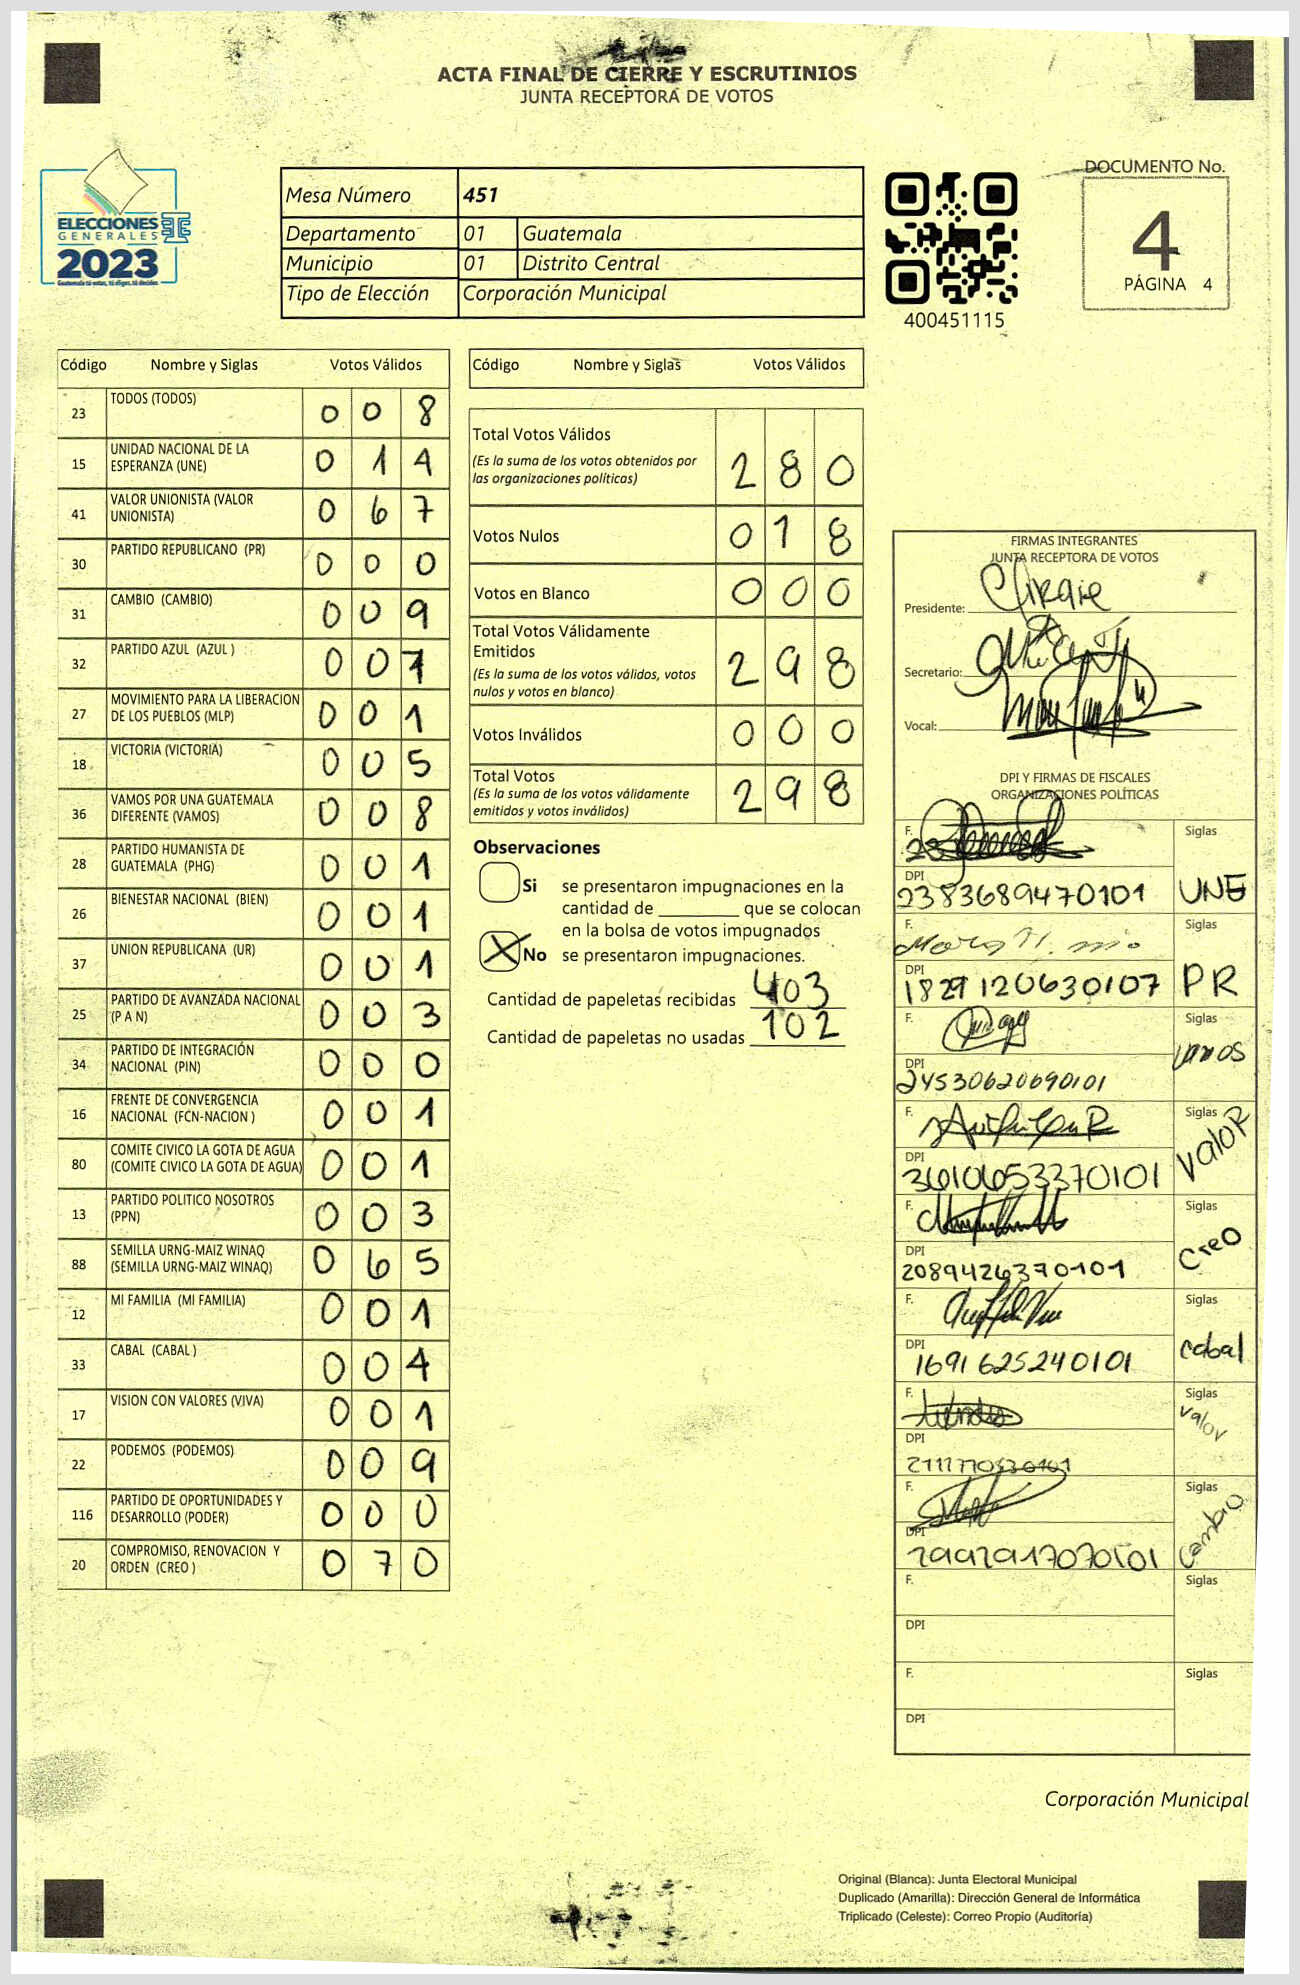 ACTA FINAL DE CIERRE Y ESCRUTINIOS
JUNTA RECEPTORA DE VOTOS
ELECCIONES
GENERALES
2023
Guatemala tú votas, tú eliges, tú decides
Mesa Número 451
Departamento 01 Guatemala
Municipio 01 Distrito Central
Tipo de Elección Corporación Municipal
400451115
DOCUMENTO No.
4
PÁGINA 4
Código Nombre y Siglas Votos Válidos
23 TODOS (TODOS) 0 0 8
15 UNIDAD NACIONAL DE LA ESPERANZA (UNE) 0 1 4
41 VALOR UNIONISTA (VALOR UNIONISTA) 0 6 7
30 PARTIDO REPUBLICANO (PR) 0 0 0
31 CAMBIO (CAMBIO) 0 0 9
32 PARTIDO AZUL (AZUL ) 0 0 7
27 MOVIMIENTO PARA LA LIBERACION DE LOS PUEBLOS (MLP) 0 0 1
18 VICTORIA (VICTORIA) 0 0 5
36 VAMOS POR UNA GUATEMALA DIFERENTE (VAMOS) 0 0 8
28 PARTIDO HUMANISTA DE GUATEMALA (PHG) 0 0 1
26 BIENESTAR NACIONAL (BIEN) 0 0 1
37 UNION REPUBLICANA (UR) 0 0 1
25 PARTIDO DE AVANZADA NACIONAL (P A N) 0 0 3
34 PARTIDO DE INTEGRACIÓN NACIONAL (PIN) 0 0 0
16 FRENTE DE CONVERGENCIA NACIONAL (FCN-NACION ) 0 0 1
80 COMITE CIVICO LA GOTA DE AGUA (COMITE CIVICO LA GOTA DE AGUA) 0 0 1
13 PARTIDO POLITICO NOSOTROS (PPN) 0 0 3
88 SEMILLA URNG-MAIZ WINAQ (SEMILLA URNG-MAIZ WINAQ) 0 6 5
12 MI FAMILIA (MI FAMILIA) 0 0 1
33 CABAL (CABAL ) 0 0 4
17 VISION CON VALORES (VIVA) 0 0 1
22 PODEMOS (PODEMOS) 0 0 9
116 PARTIDO DE OPORTUNIDADES Y DESARROLLO (PODER) 0 0 0
20 COMPROMISO, RENOVACION Y ORDEN (CREO ) 0 7 0
Código Nombre y Siglas Votos Válidos
Total Votos Válidos 2 8 0
(Es la suma de los votos obtenidos por
las organizaciones políticas)
Votos Nulos 0 1 8
Votos en Blanco 0 0 0
Total Votos Válidamente
Emitidos 2 9 8
(Es la suma de los votos válidos, votos
nulos y votos en blanco)
Votos Inválidos 0 0 0
Total Votos 2 9 8
(Es la suma de los votos válidamente
emitidos y votos inválidos)
Observaciones
Si se presentaron impugnaciones en la
cantidad de ________ que se colocan
en la bolsa de votos impugnados
X No se presentaron impugnaciones.
Cantidad de papeletas recibidas 403
Cantidad de papeletas no usadas 102
FIRMAS INTEGRANTES
JUNTA RECEPTORA DE VOTOS
Presidente:
Secretario:
Vocal:
DPI Y FIRMAS DE FISCALES
ORGANIZACIONES POLÍTICAS
F. Siglas
DPI 2383689470101 UNE
F. Siglas
DPI 1829120630107 PR
F. Siglas
DPI 24530620690101 vamos
F. Siglas
DPI 3610653370101 valoR
F. Siglas
DPI 2089426370101 Creo
F. Siglas
DPI 1691625240101 cabal
F. Siglas
DPI valor
F. Siglas
DPI Cambio
F. Siglas
DPI
F. Siglas
DPI
Corporación Municipal
Original (Blanca): Junta Electoral Municipal
Duplicado (Amarilla): Dirección General de Informática
Triplicado (Celeste): Correo Propio (Auditoría)